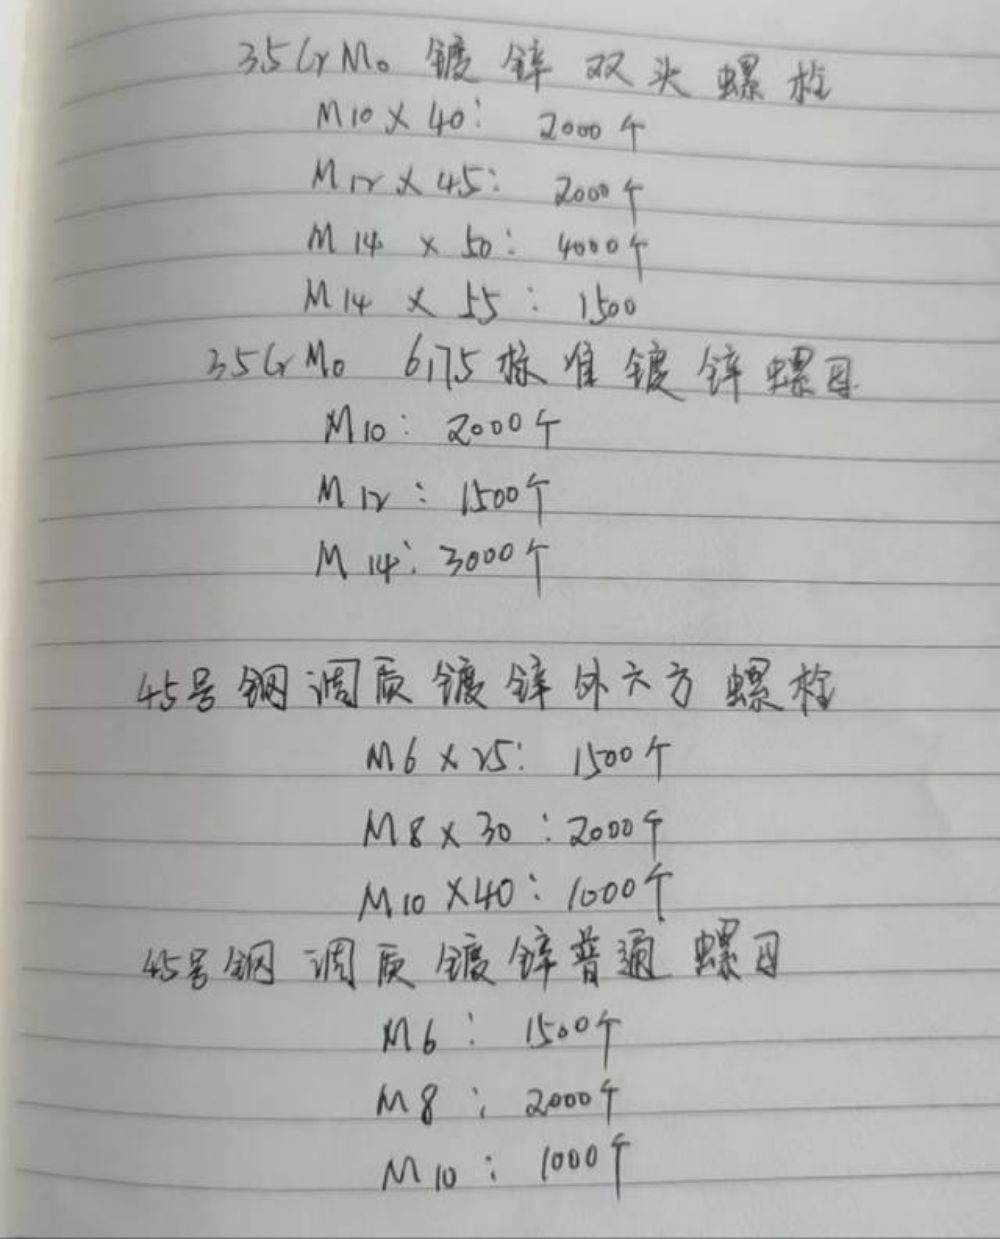 35CrMo 镀锌双头螺栓
M10×40: 2000个
M12×45: 2000个
M14×50: 4000个
M14×55: 1500
35CrMo 6175标准镀锌螺母
M10: 2000个
M12: 1500个
M14: 3000个
45号钢调质镀锌外六方螺栓
M6×25: 1500个
M8×30: 2000个
M10×40: 1000个
45号钢调质镀锌普通螺母
M6: 1500个
M8: 2000个
M10: 1000个